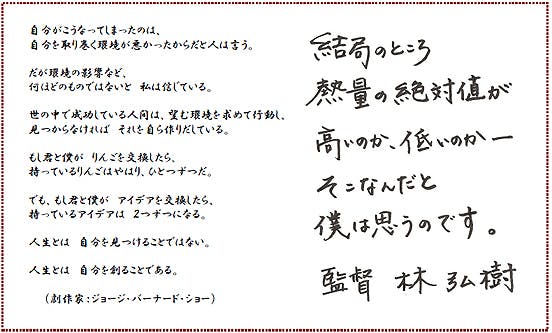 自分がこうなってしまったのは、
自分を取り巻く環境が悪かったからだと人は言う。
だが環境の影響など、
何ほどのものではないと 私は信じている。
世の中で成功している人間は、望む環境を求めて行動し、
見つからなければ それを自ら作りだしている。
もし君と僕が りんごを交換したら、
持っているりんごはやはり、ひとつずつだ。
でも、もし君と僕が アイデアを交換したら、
持っているアイデアは 2つずつになる。
人生とは 自分を見つけることではない。
人生とは 自分を創ることである。
(劇作家:ジョージ・バーナード・ショー)
結局のところ
熱量の絶対値が
高いのか、低いのかー
そこなんだと
僕は思うのです。
監督 林 弘樹